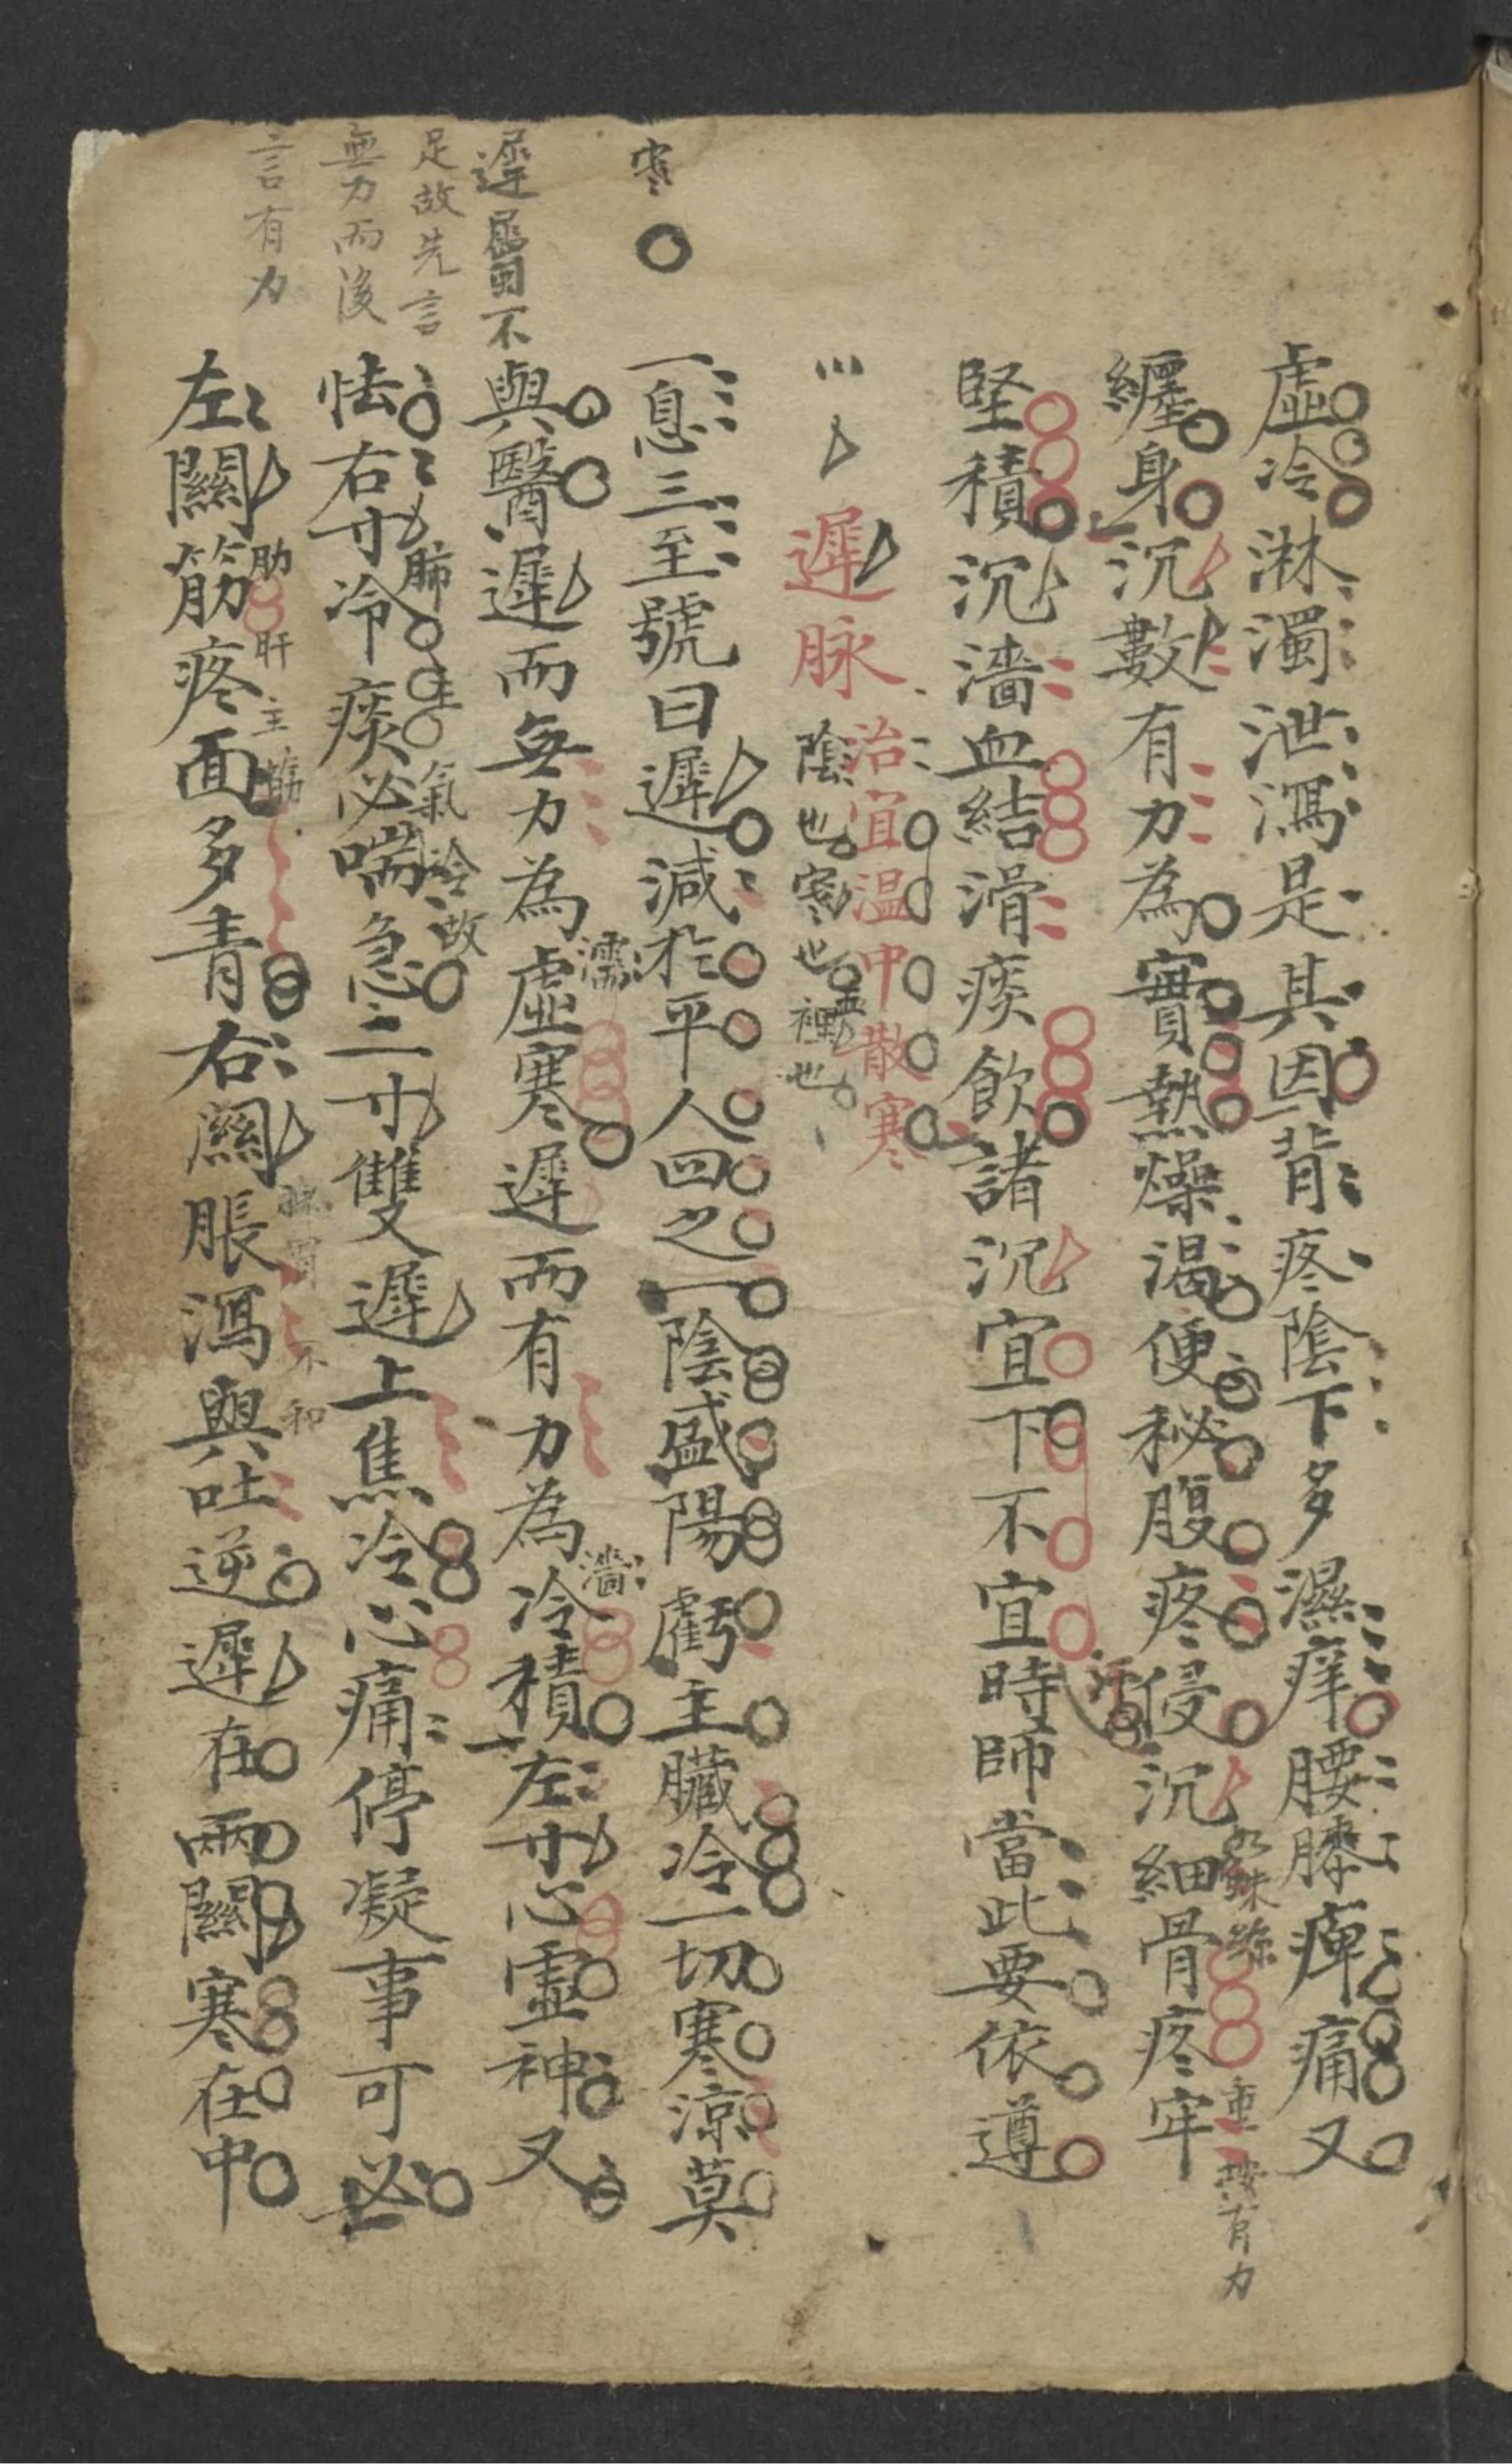 虛冷淋濁泄瀉是其因背疼陰下多濕痒腰膝痺痛又
纏身沉數有力為實熱燥渴便秘腹疼侵沉細骨疼牢
如蛛絲
重按有力
堅積沉濇血結滑痰飲諸沉宜下不宜時師當此要依遵
汗
遲脉
治宜温中散寒
陰也寒也裡也
血
寒
一息三至號曰遲減於平人四之一陰盛陽虧主臟冷一切寒涼莫
與醫遲而無力為虛寒遲而有力為冷積左寸心虛神又
濡
濇
怯右寸冷痰必喘急二寸雙遲上焦冷心痛停凝事可必
肺主氣冷故
左關筋疼面多青右關脹瀉與吐逆遲在兩關寒在中
肋
肝主筋
脉胃不和
不
足故先言
無力而後
言有力